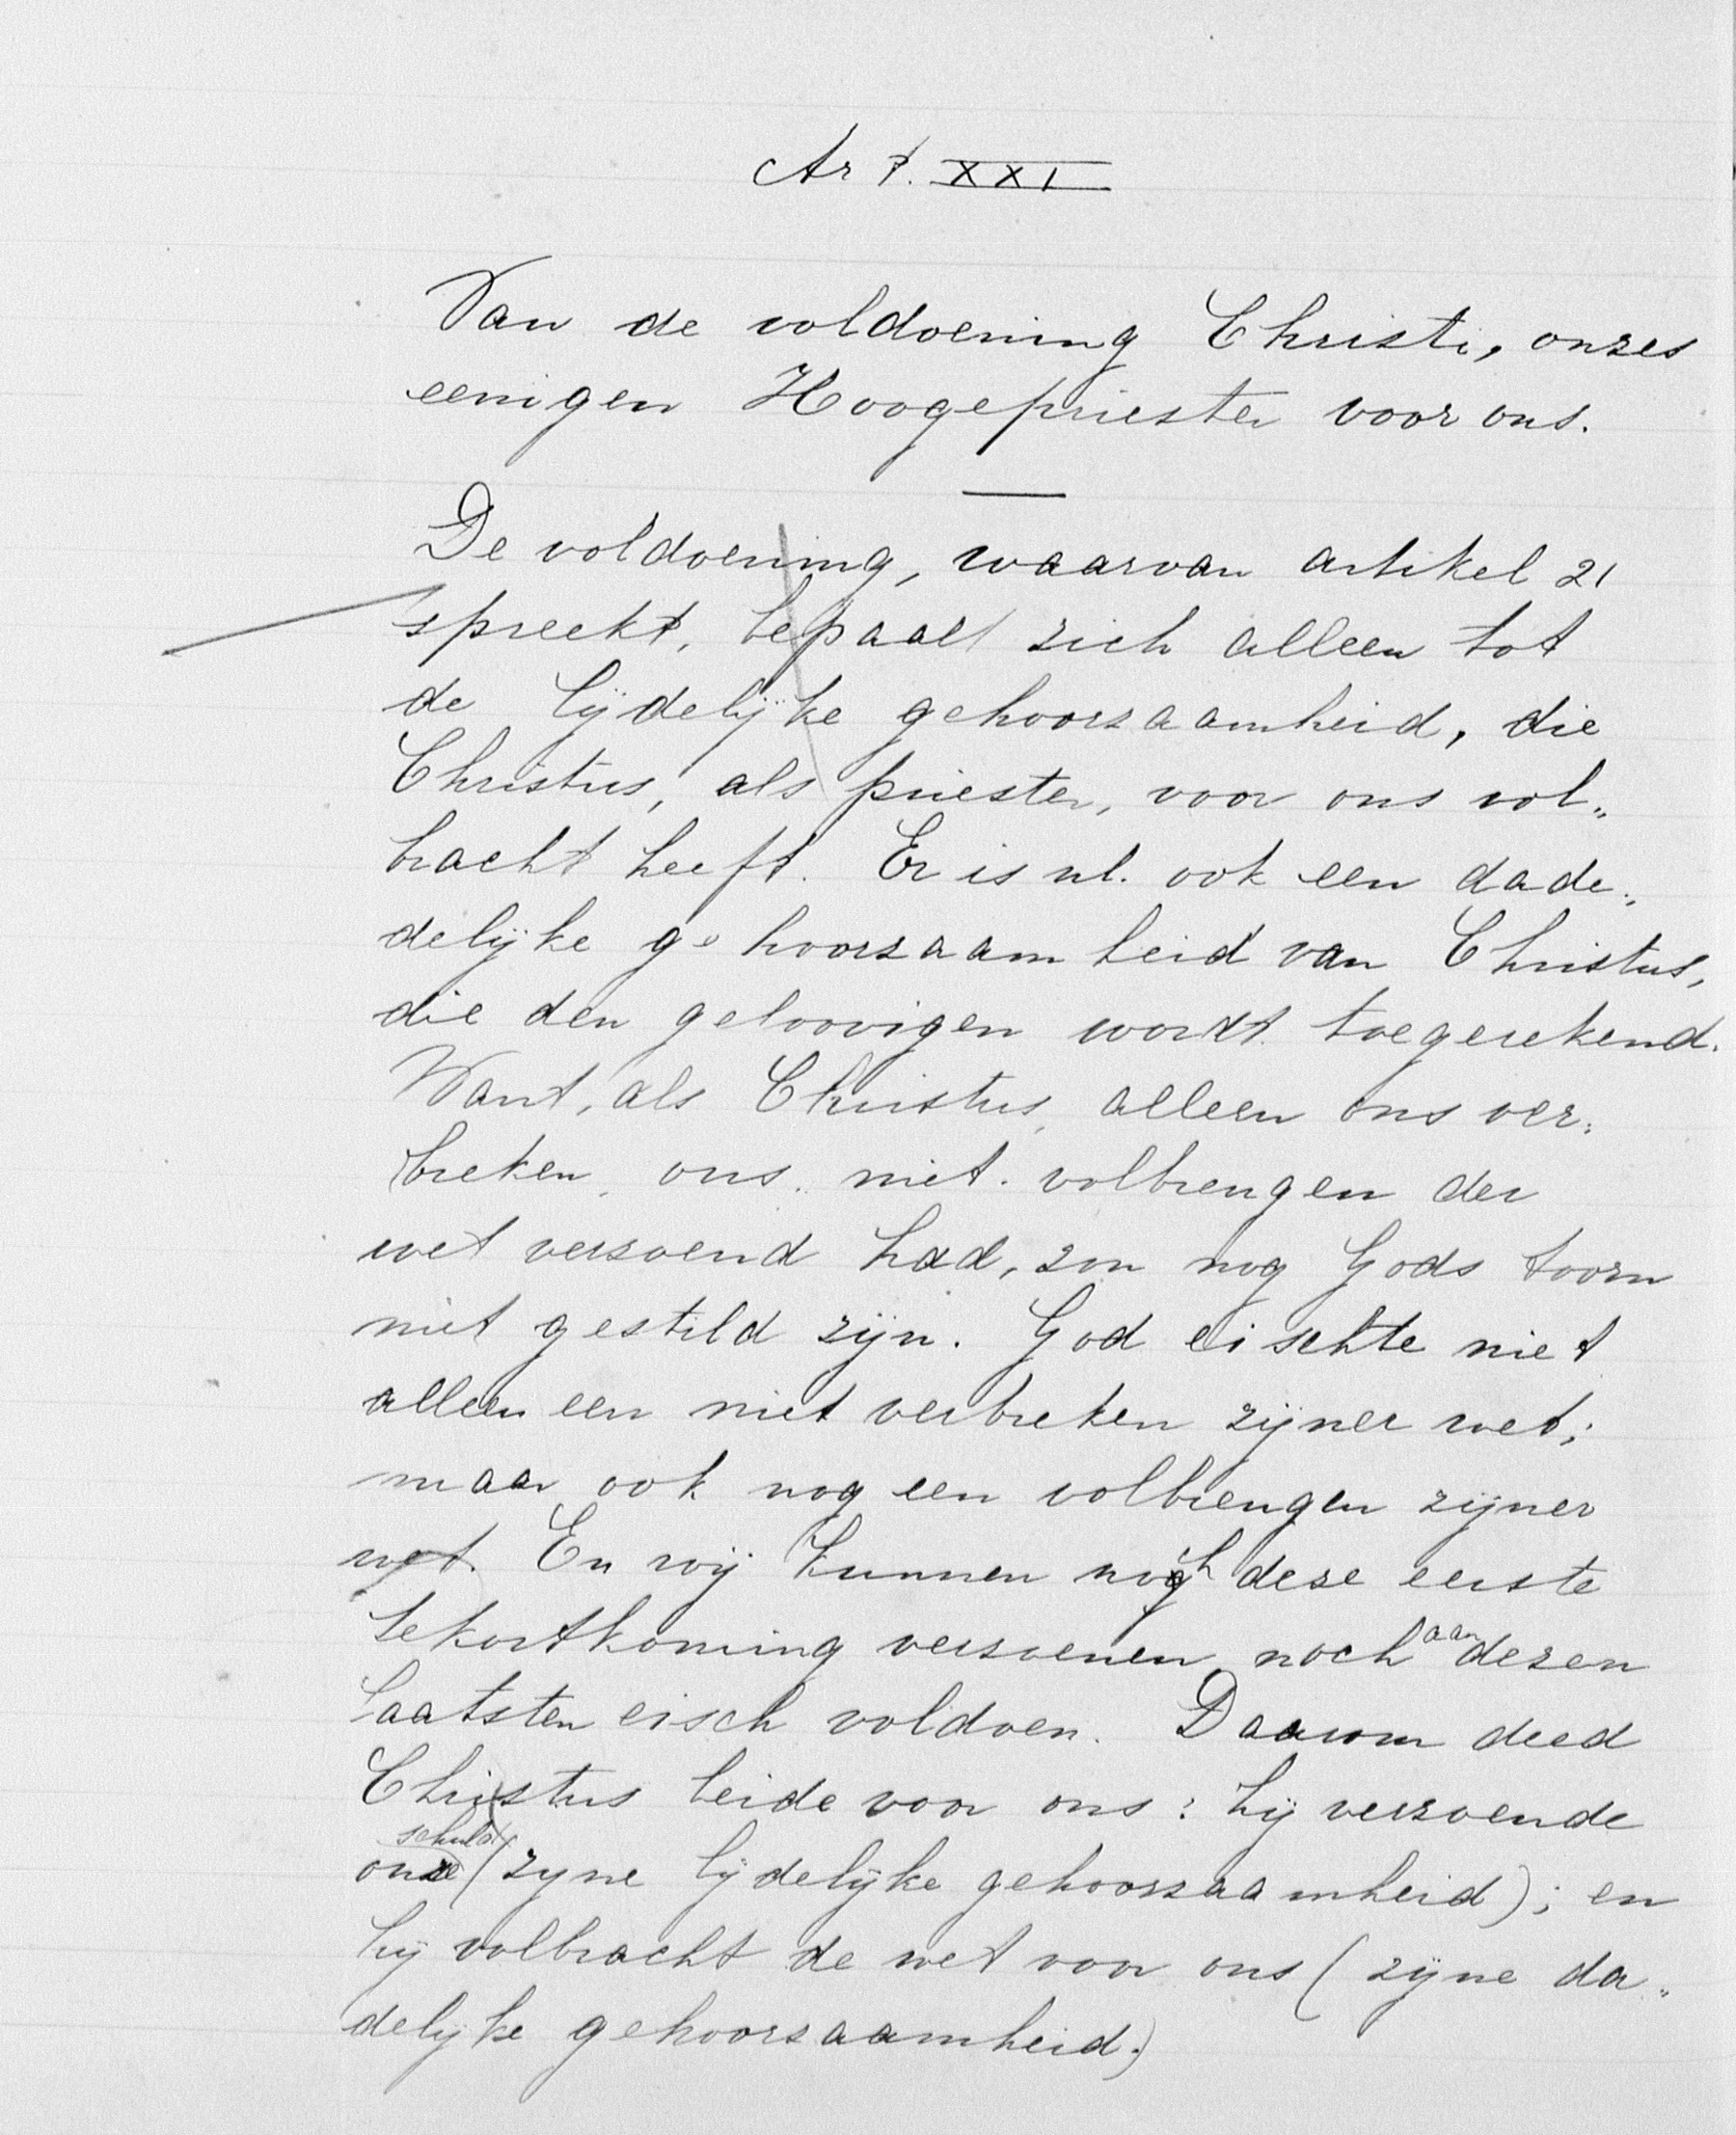 Art. XXI
Van de voldoening Christi, onzes
eenigen Hoogepriester voor ons.
De voldoening, waarvan artikel 21
spreekt, bepaalt zich alleen tot
de lijdelijke gehoorzaamheid, die
Christus, als priester, voor ons vol„
bracht heeft. Er is nl. ook een dade„
delijke gehoorzaamheid van Christus,
die den geloovigen wordt toegerekend.
Want, als Christus, alleen ons ver„
breken, ons niet volbrengen der
wet verzoend had, zou nog Gods toorn
niet gestild zijn. God eischte niet
alleen een niet verbreken zijner wet;
maar ook nog een volbrengen zijner
wet. En wij kunnen noch deze eerste
tekortkoming verzoenen, noch aan dezen
laatsten eisch voldoen. Daarom deed
Christus beide voor ons: hij verzoende
onze schuld (zyne lijdelijke gehoorzaamheid); en
hij volbracht de wet voor ons (zijne da„
delijke gehoorzaamheid.)